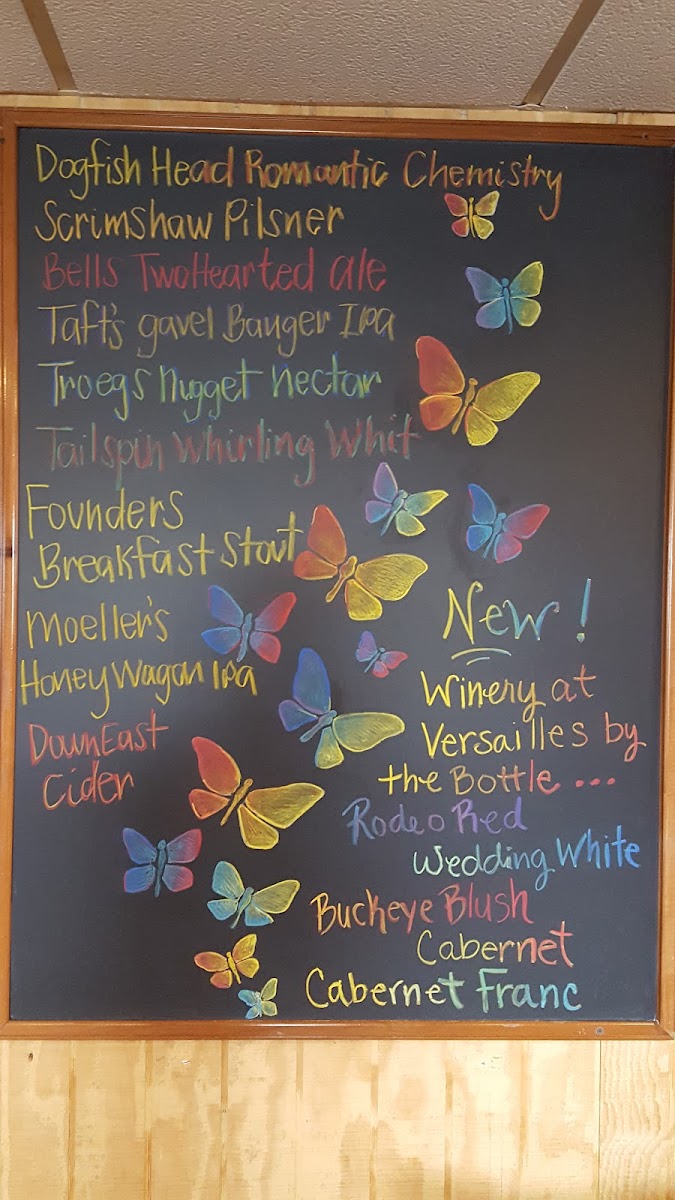 Dogfish Head Romantic Chemistry
Scrimshaw Pilsner
Bells TwoHearted ale
Taft's gavel Banger IPa
Troegs Nugget Nectar
Tailspin Whirling Whit
Founders
Breakfast Stout
Moeller's
Honey Wagon IPa
DownEast
Cider
New!
Winery at
Versailles by
the Bottle ...
Rodeo Red
Wedding White
Buckeye Blush
Cabernet
Cabernet Franc